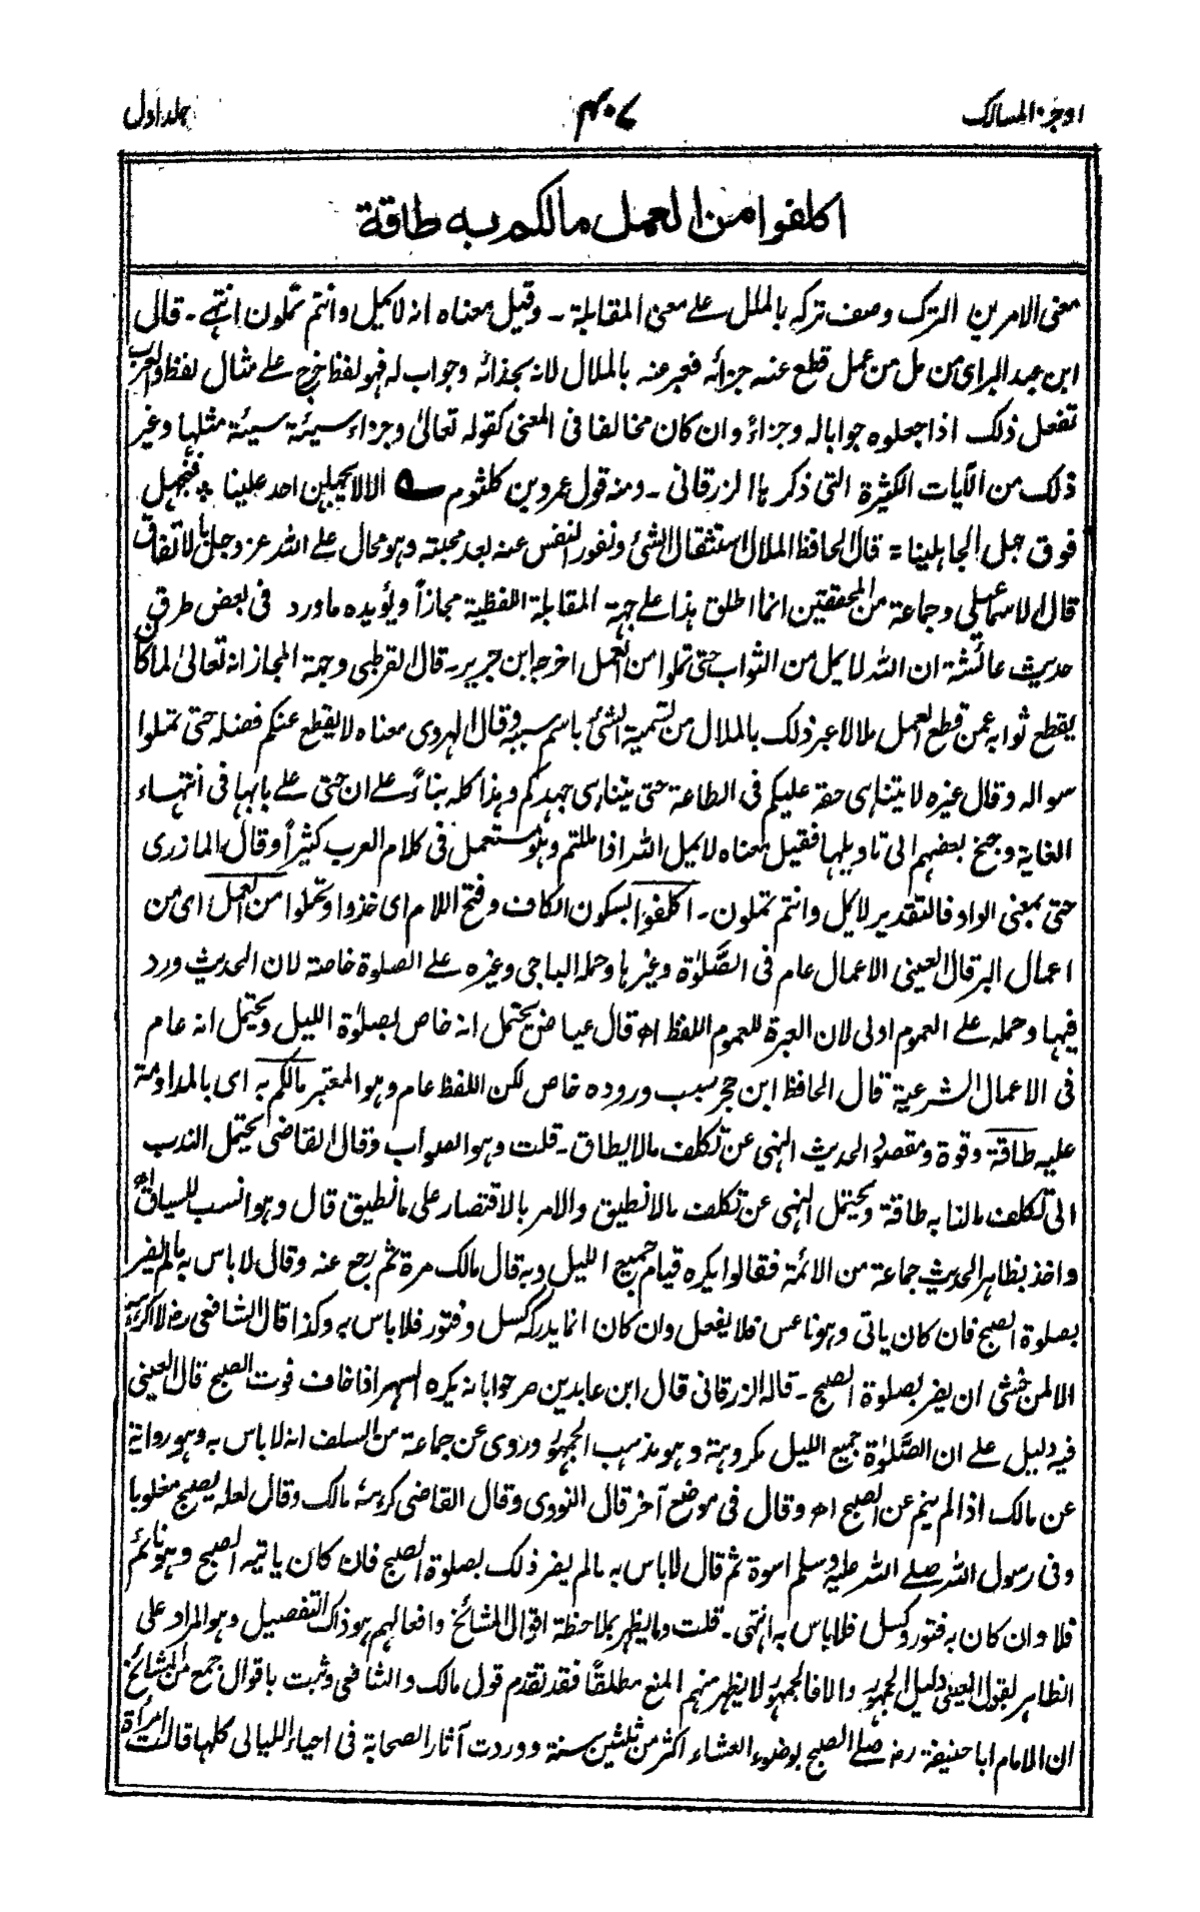 اوجز المسالك
٤٠٧
جلد اول
اكلفوا من العمل مالكم به طاقة
معنى الامرين الترك وصف تركه بالملل على معنى المقابلة ـ وقيل معناه انه لا يمل وانتم تملون انتهى ـ قال
ابن عبد البر اى من مل من عمل قطع عنه جزائه فعبر عنه بالملال لانه بحذائه وجواب له فهو لفظ خرج على مثال لفظ والعرب
تفعل ذلك اذا جعلوه جوابا له وجزاءً وان كان مخالفا فى المعنى كقوله تعالىٰ وجزاء سيئة سيئة مثلها وغير
ذلك من الآيات الكثيرة التى ذكرها الزرقانى ـ ومنه قول عمرو بن كلثوم الا لا يجهلن احد علينا ۞ فنجهل
فوق جهل الجاهلينا = قال الحافظ الملال استثقال الشئ ونفور النفس عنه بعد محبته وهو محال على الله عز وجل بالاتفاق
قال الاسماعيلى وجماعة من المحققين انما اطلق هذا على جهة المقابلة اللفظية مجازاً ويؤيده ما ورد فى بعض طرق
حديث عائشة ان الله لا يمل من الثواب حتى تملوا من العمل اخرجه ابن جرير ـ قال القرطبى وجهة المجاز انه تعالىٰ لما كان
يقطع ثوابه عمن قطع العمل ملالا عبر ذلك بالملال من تسمية الشئ باسم سببه وقال الهروى معناه لا يقطع عنكم فضله حتى تملوا
سواله وقال غيره لا يتناهى حقه عليكم فى الطاعة حتى يتناهى جهدكم وهذا كله بناءً على ان حتى على بابها فى انتهاء
الغاية وجنح بعضهم الى تاويلها فقيل معناه لا يمل الله اذا مللتم وهو مستعمل فى كلام العرب كثيراً وقال المازرى
حتى بمعنى الواو فالتقدير لا يمل وانتم تملون ـ اكلفوا بسكون الكاف وفتح اللام اى خذوا وتحملوا من العمل اى من
اعمال البر قال العينى الاعمال عام فى الصَّلوٰة وغيرها وحمله الباجى وغيره على الصلوة خاصة لان الحديث ورد
فيها وحمله على العموم اولى لان العبرة للعموم اللفظ اه قال عياض يحتمل انه خاص بصلوٰة الليل ويحتمل انه عام
فى الاعمال الشرعية قال الحافظ ابن حجر سبب وروده خاص لكن اللفظ عام وهو المعتبر مالكم به اى بالمداومة
عليه طاقة وقوة ومقصود الحديث النهى عن تكلف مالا يطاق ـ قلت وهو الصواب وقال القاضى يحتمل الندب
الى تكلف مالنا به طاقة ويحتمل النهى عن تكلف مالا نطيق والامر بالاقتصار على ما نطيق قال وهو انسب للسياق اه
واخذ بظاهر الحديث جماعة من الائمة فقالوا يكره قيام جميع الليل وبه قال مالك مرة ثم رجع عنه وقال لا باس به مالم يضر
بصلوة الصبح فان كان ياتى وهو ناعس فلا يفعل وان كان انما يدركه كسل وفتور فلا باس به وكذا قال الشافعى رض لا اكرهه
الا لمن خشى ان يضر بصلوة الصبح ـ قاله الزرقانى قال ابن عابدين صرحوا بانه يكره السهر اذا خاف فوت الصبح قال العينى
فيه دليل على ان الصَّلوٰة جميع الليل مكروهة وهو مذهب الجمهور وروى عن جماعة من السلف انه لا باس به وهو رواية
عن مالك اذا لم ينم عن الصبح اه وقال فى موضع آخر قال النووى وقال القاضى كرهه مالك وقال لعله يصبح مغلوبا
وفى رسول الله صلى الله عليه وسلم اسوة ثم قال لا باس به مالم يضر ذلك بصلوة الصبح فان كان ياتيه الصبح وهو نائم
فلا وان كان به فتور وكسل فلا باس به انتهى ـ قلت وما يظهر بملاحظة اقوال المشائخ وافعالهم هو ذاك التفصيل وهو المراد على
الظاهر لقول العينى دليل الجمهور والا فالجمهور لا يظهر منهم المنع مطلقاً فقد تقدم قول مالك والشافعى وثبت باقوال جمع من المشائخ
ان الامام ابا حنيفة رض صلى الصبح بوضوء العشاء اكثر من ثلثين سنة ووردت آثار الصحابة فى احياء الليالى كلها قالت امرأة